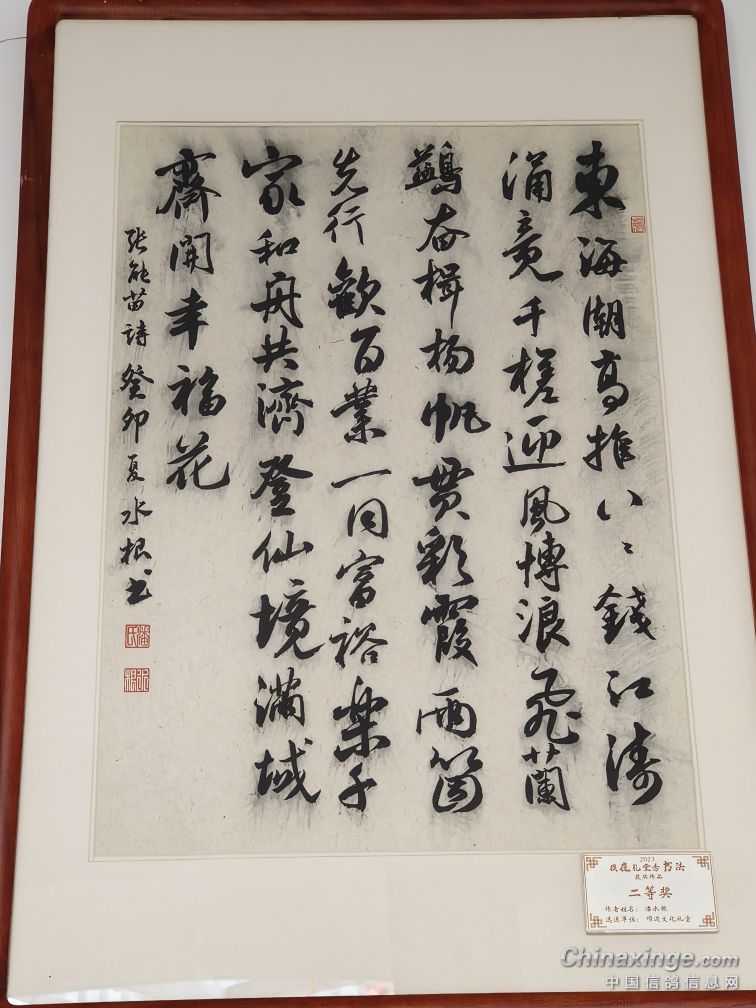 東海潮高推八〻錢江濤
涌竞千槎迎風博浪飛蘭
鷁奋楫杨帆贯彩霞兩箇
先行歡百業一同富裕樂千
家和舟共濟登仙境滿城
齊開幸福花
張能苗詩 癸卯夏 水根书
2023
我在礼堂秀书法
获奖作品
二等奖
作者姓名：潘水根
选送单位：项边文化礼堂
Chinaxinge.com
中国信鸽信息网